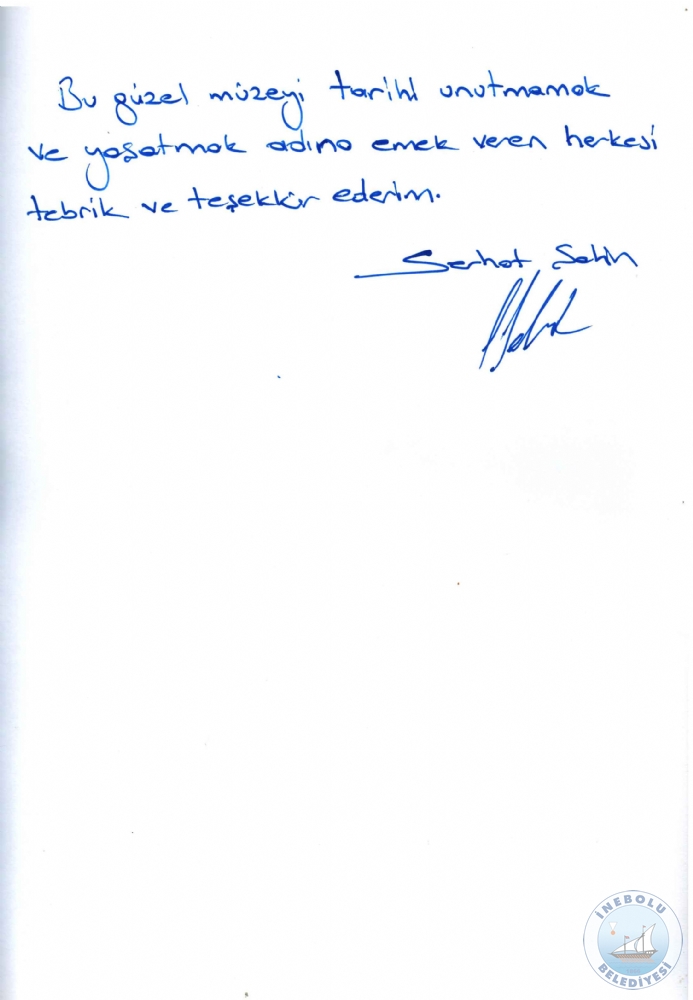 Bu güzel müzeyi tarihi unutmamak
ve yaşatmak adına emek veren herkesi
tebrik ve teşekkür ederim.
Serhat Şahin
İNEBOLU
BELEDİYESİ